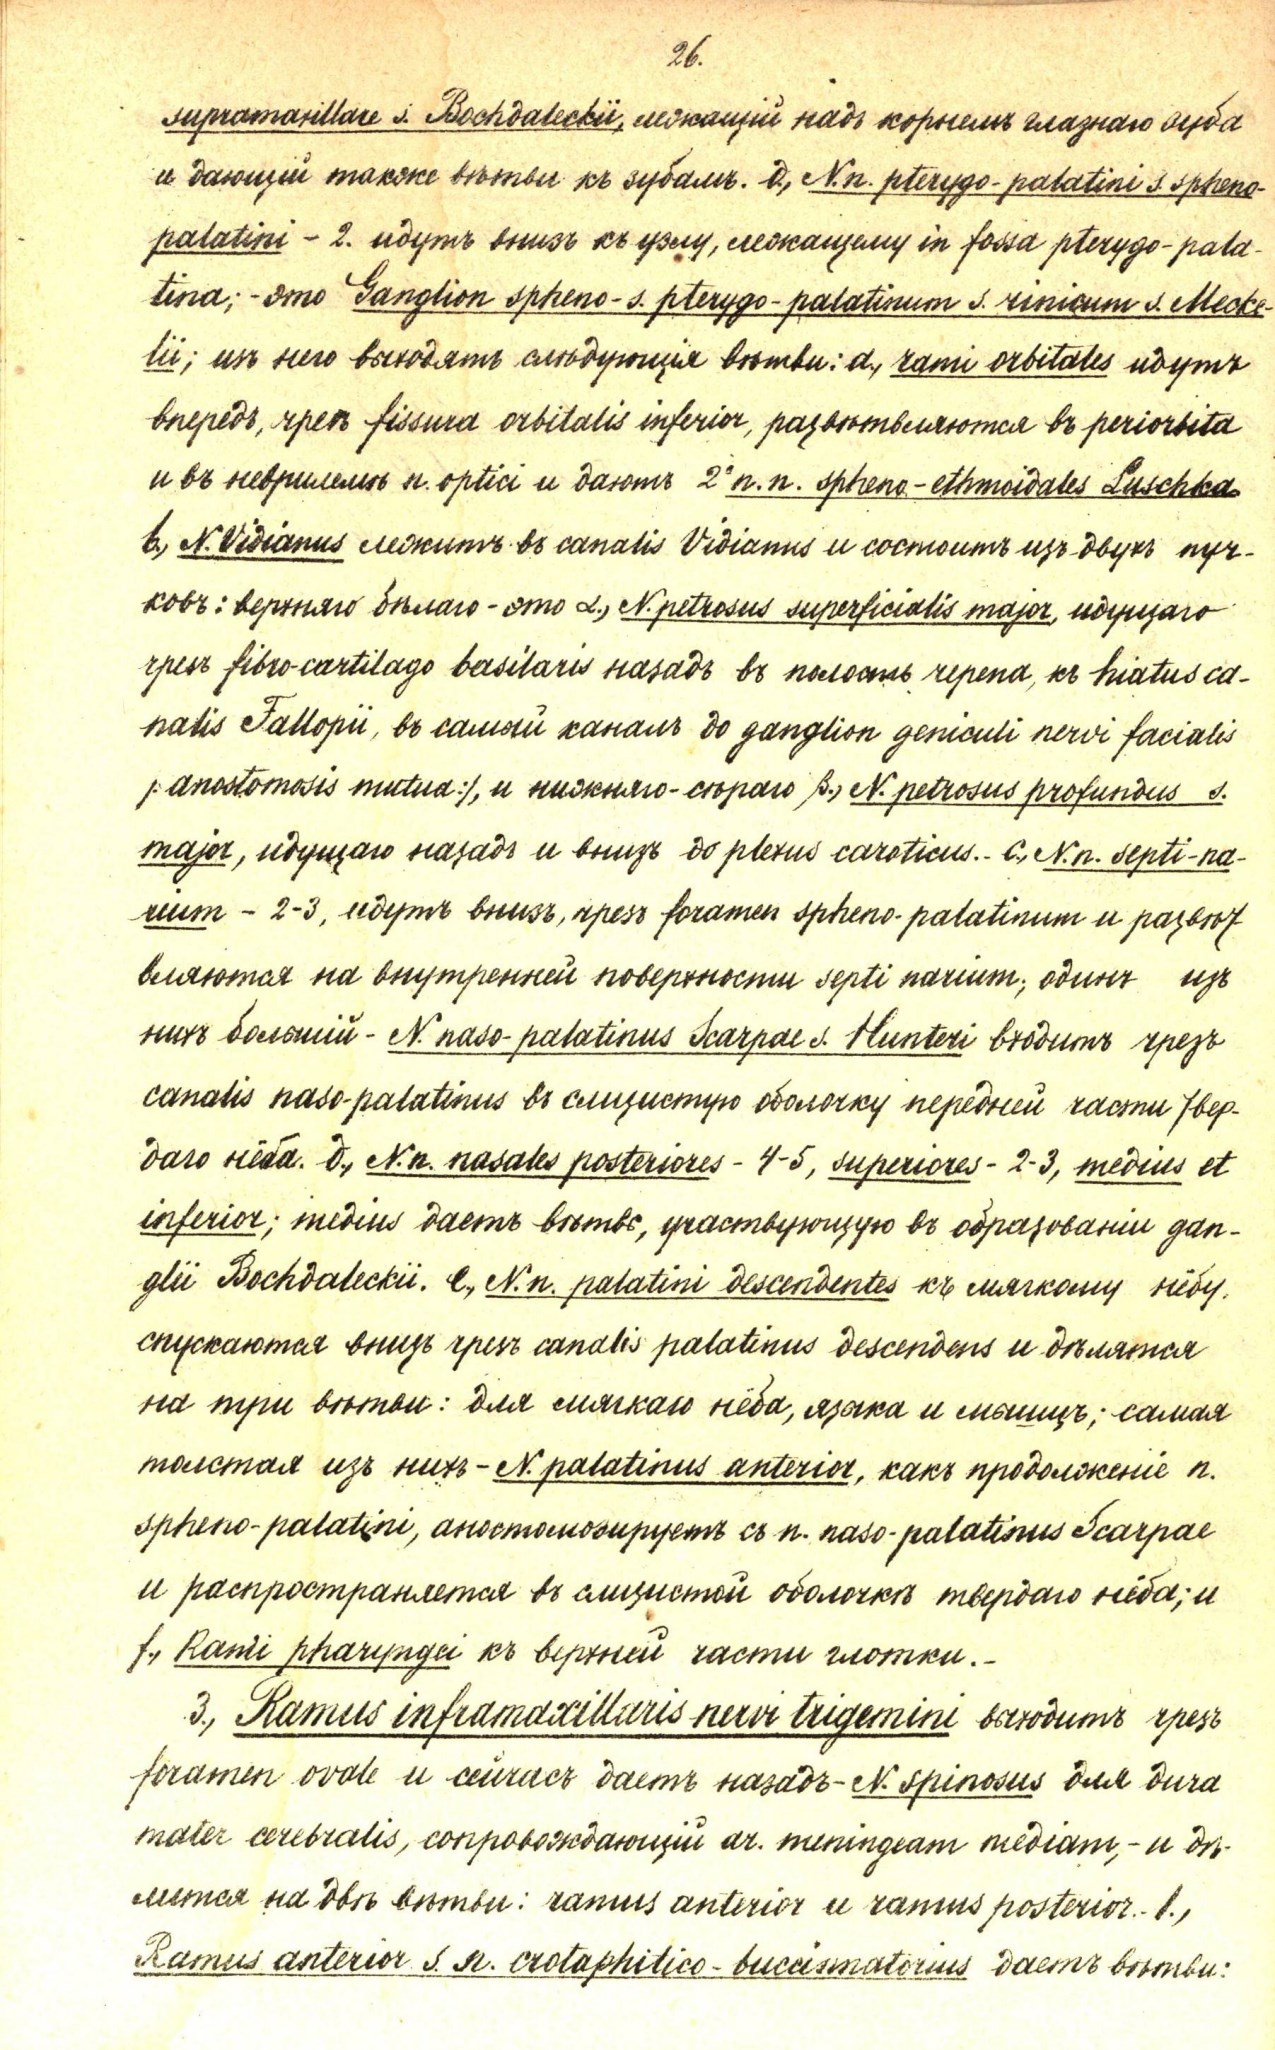 26.
supramaxillare s. Bochdaleckii, лежащій надъ корнемъ глазнаго зуба
и дающій также вѣтви къ зубамъ. d., N.n. pterygo-palatini s. spheno-
palatini – 2. идутъ внизъ къ узлу, лежащему in fossa pterygo-pala-
tina; - это Ganglion spheno- s. pterygo-palatinum s. rinicum s. Mecke-
lii; изъ него выходятъ слѣдующія вѣтви: a., rami orbitales идутъ
впередъ, чрезъ fissura orbitalis inferior, развѣтвляются въ periorbita
и въ неврилемѣ n. optici и даютъ 2а n.n. spheno-ethmoidales Luschka
b., N. Vidianus лежитъ въ canalis Vidianus и состоитъ изъ двухъ пуч-
ковъ: верхняго бѣлаго - это α., N. petrosus superficialis major, идущаго
чрезъ fibro-cartilago basilaris назадъ въ полость черепа, къ hiatus ca-
nalis Fallopii, въ самый каналъ до ganglion geniculi nervi facialis
/: anostomosis mutua :/, и нижняго - сѣраго β., N. petrosus profundus s.
major, идущаго назадъ и внизъ до plexus caroticus. - c., N.n. septi-na-
rium – 2-3, идутъ внизъ, чрезъ foramen spheno-palatinum и развѣт-
вляются на внутренней поверхности septi narium; одинъ изъ
нихъ большій - N. naso-palatinus Scarpae s. Hunteri входитъ чрезъ
canalis naso-palatinus въ слизистую оболочку передней части твер-
даго нёба. d., N.n. nasales posteriores - 4-5, superiores - 2-3, medius et
inferior; medius даетъ вѣтвь, участвующую въ образованіи gan-
glii Bochdaleckii. e., N.n. palatini descendentes къ мягкому нёбу,
спускаются внизъ чрезъ canalis palatinus descendens и дѣлятся
на три вѣтви: для мягкаго нёба, языка и мышцъ; самая
толстая изъ нихъ - N. palatinus anterior, какъ продолженіе n.
spheno-palatini, аностомозируетъ съ n. naso-palatinus Scarpae
и распространяется въ слизистой оболочкѣ твердаго нёба; и
f., Rami pharyngei къ верхней части глотки. -
3., Ramus inframaxillaris nervi trigemini выходитъ чрезъ
foramen ovale и сейчасъ даетъ назадъ - N. spinosus для dura
mater cerebralis, сопровождающій ar. meningeam mediam, - и дѣ-
лится на двѣ вѣтви: ramus anterior и ramus posterior. - 1.,
Ramus anterior s. n. crotaphitico-buccinatorius даетъ вѣтви: